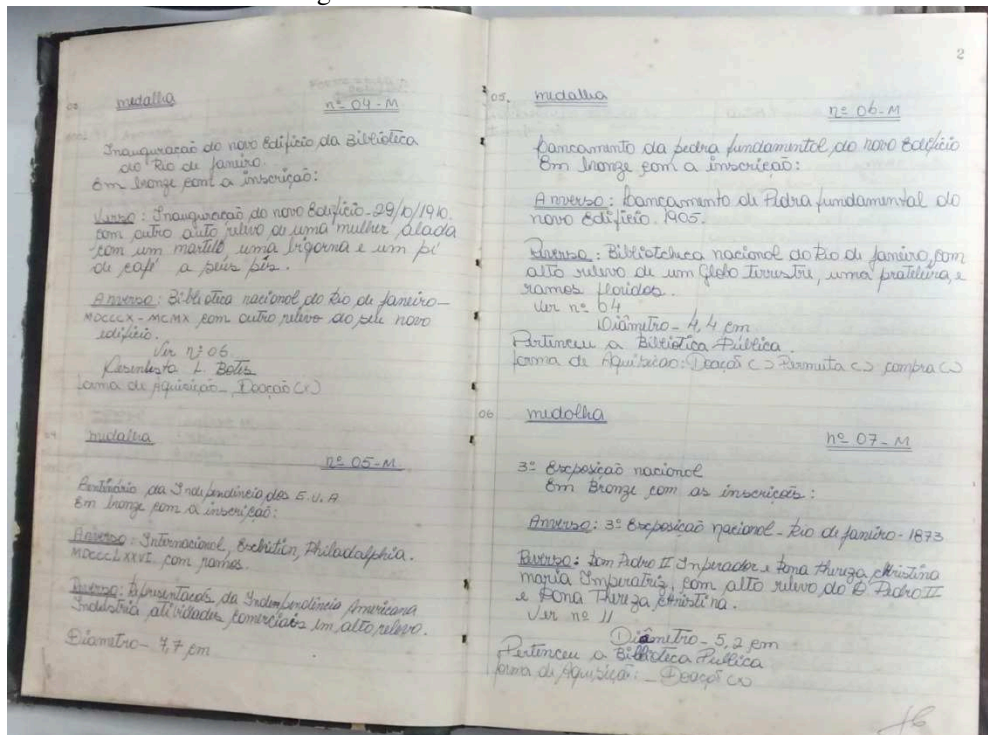 03 medalha
nº 04-M
Inauguração do novo Edifício da Biblioteca
do Rio de Janeiro.
Em bronze com a inscrição:
Verso: Inauguração do novo Edifício-29/10/1910.
com outro auto relevo de uma mulher alada
com um martelo, uma bigorna e um pé
de café a seus pés.
Anverso: Biblioteca nacional do Rio de Janeiro-
MDCCCX-MCMX com outro relevo do seu novo
edifício.
Ver nº 06
Desenhista L. Botis
forma de Aquisição_ Doação (x)
04 medalha
nº 05-M.
Centinário da Independência dos E.U.A
Em bronze com a inscrição:
Anverso: Internacional, Exhibition, Philadalphia.
MDCCCLXXVI, com ramos.
Reverso: Representacoês da Independência Americana
Indústria atividades comerciais em alto relevo.
Diametro- 7,7 cm
2
05. medalha
nº 06-M
Lançamento da pedra fundamental do novo Edifício
Em bronze com a inscrição:
Anverso: Lançamento de Pedra fundamental do
novo Edifício. 1905.
Reverso: Bibliotheca nacional do Rio de Janeiro, com
alto relevo de um Globo Terrestre, uma prateleira, e
ramos floridos.
Ver nº 04
Diâmetro- 4,4 cm
Pertinceu a Biblioteca Pública.
forma de Aquisicão: Doação ( ) Permuta ( ) compra ( )
06 medalha
nº 07-M
3º Exposicão nacional
Em Bronze com as inscriçoês:
Anverso: 3º Exposicão nacional-Rio de Janeiro-1873
Reverso: Dom Pedro II Inperador e Dona Thereza Christina
maria Imperatriz, com alto relevo do D. Pedro II
e Dona Thereza Christina.
Ver nº 11
Diâmetro-5,2 cm
Pertinceu a Biblioteca Pública
forma de Aquisição:_ Doação (x)